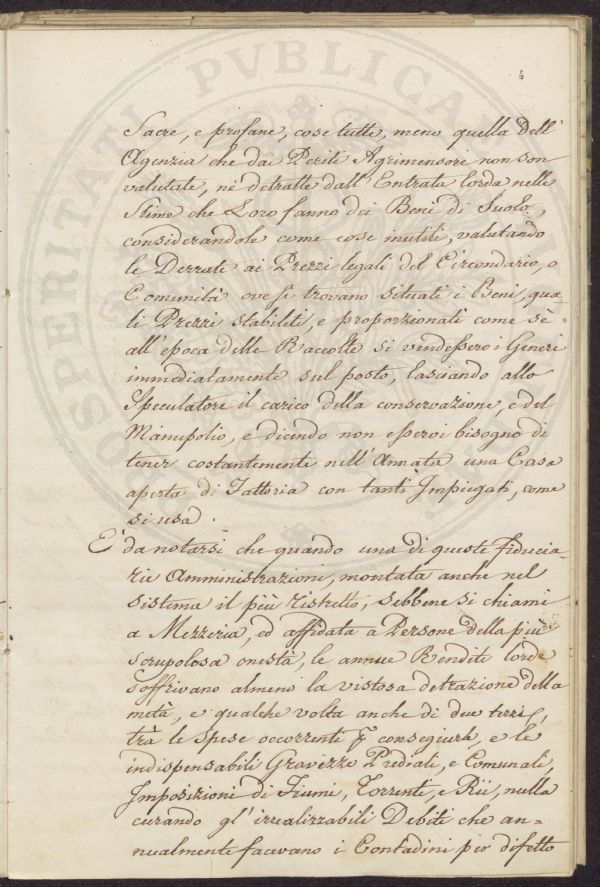 4
Sacre, e profane, cose tutte, meno quella dell'
Agenzia che dai Periti Agrimensori non son
valutate, nè detratte dall'Entrata lorda nelle
Stime che Loro fanno dei Beni di Suolo,
considerandole come cose inutili, valutando
le Derrate ai Prezzi legali del Circondario, o
Comunità ove si trovano situati i Beni, qua-
li Prezzi stabiliti, e proporzionati come sè
all'epoca delle Raccolte si vendessero i Generi
immediatamente sul posto, lasciando allo
Speculatore il carico della conservazione, e del
Manupolio, e dicendo non esservi bisogno di
tener costantemente nell'Annata una Casa
aperta di Fattoria con tanti Impiegati, come
si usa.
E' da notarsi che quando una di queste fiducia-
rie Amministrazioni, montata anche nel
sistema il più ristretto, sebbene si chiami
a Mezzeria, ed affidata a Persone della più
scrupolosa onistà, le annue Rendite lorde
soffrivano almeno la vistosa detrazione della
metà, e qualche volta anche di due terzi,
trà le Spese occorrenti consegiure, e le
indispensabili Gravezze Prediali, e Comunali,
Imposizioni di Fiumi, Torrenti, e Rii, nulla
curando gl'irrealizzabili Debiti che an=
nualmente facevano i Contadini per difetto
PROSPERITATI PVBLICAE